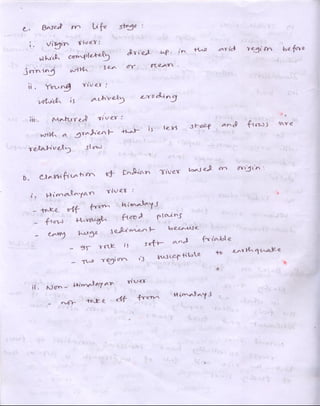 c. Based on life stage :
i. Virgin river:
which completely dried up in the arid region before
joining with sea or ocean.
ii. Young river :
which is actively eroding
iii. Matured river :
with a gradient that is less steep and flows are
relatively slow
D. Classification of Indian River based on origin :
i. Himalayan river :
- take off from himalays
- flow through flood plains
- carry huge sediment because
- rock is soft and friable
- The region is susceptible to earthquake
ii. Non- Himalayan river
- not take off from Himalays